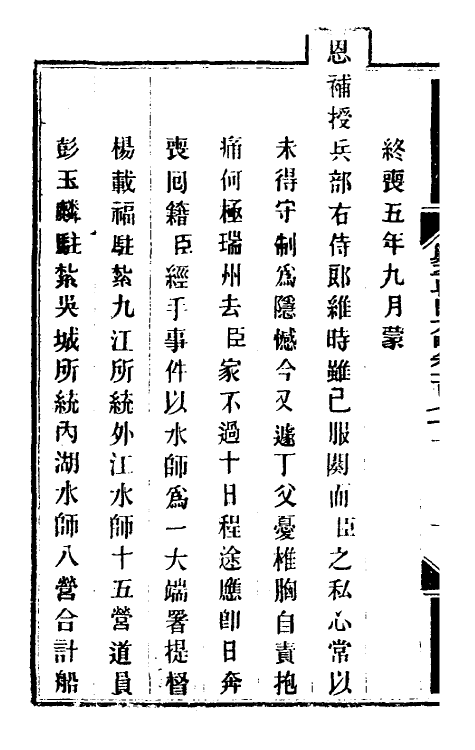 終喪五年九月蒙
恩補授兵部右侍郎維時雖已服闋而臣之私心常以
未得守制爲隱憾今又遽丁父憂椎胸自責抱
痛何極瑞州去臣家不過十日程途應即日奔
喪囘籍臣經手事件以水師爲一大端署提督
楊載福駐紮九江所統外江水師十五營道員
彭玉麟駐紮吳城所統內湖水師八營合計船